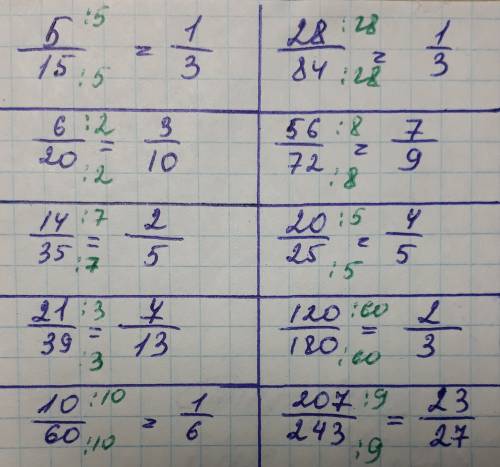 5/15 :5 :5 = 1/3
28/84 :28 :28 = 1/3
6/20 :2 :2 = 3/10
56/72 :8 :8 = 7/9
14/35 :7 :7 = 2/5
20/25 :5 :5 = 4/5
21/39 :3 :3 = 7/13
120/180 :60 :60 = 2/3
10/60 :10 :10 = 1/6
207/243 :9 :9 = 23/27